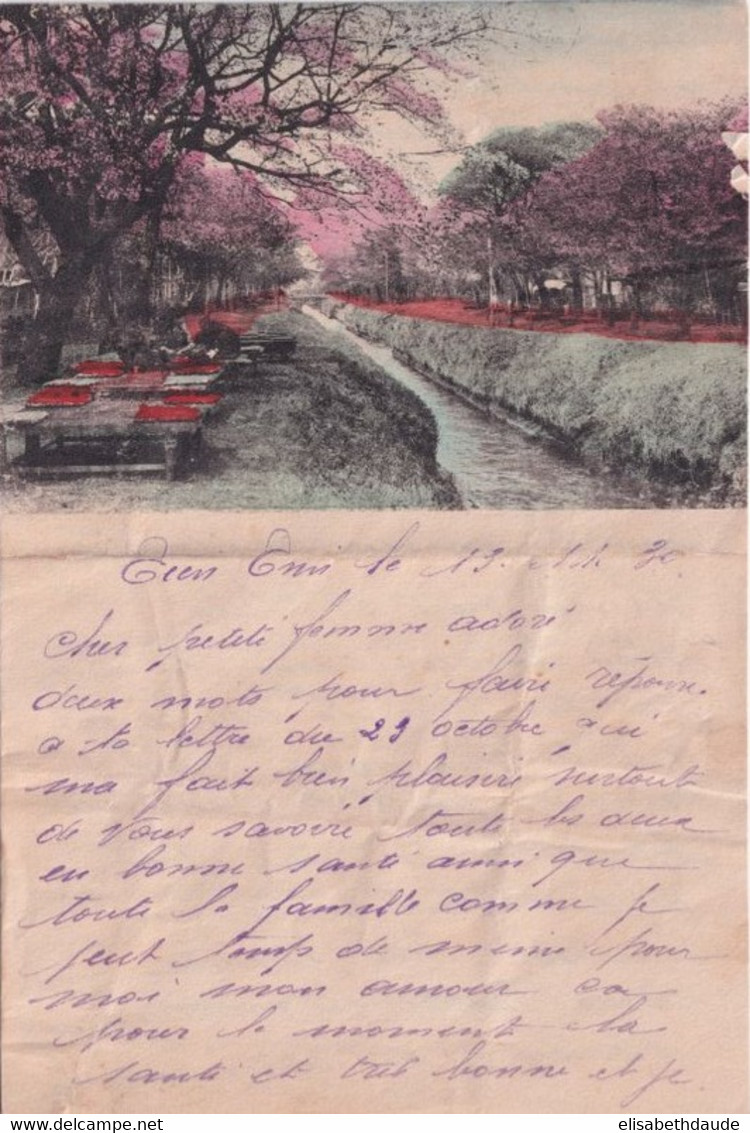 le 19
Cher petite femme adoré
deux mots pour faire réponse
a ta lettre du 29 octobre qui
ma fait bien plaisire surtout
de vous savoire toute les deux
en bonne santé ainsi que
toute la famille comme je
peut de meme pour
moi mon amour ca
pour le moment la
santé et tres bonne et je
elisabethdaude